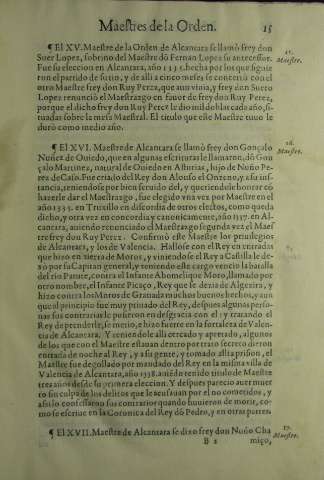 Maestres de la Orden. 15
¶ El XV. Maestre de la Orden de Alcantara se llamò frey don
Suer Lopez, sobrino del Maestre dõ Fernan Lopez su antecessor.
Fue su eleccion en Alcantara, año 1335. hecha por los que siguie
ron el partido de su tio, y de alli a cinco meses se concertò con el
otro Maestre frey don Ruy Perez, que aun viuia, y frey don Suero
Lopez renunciò el Maestrazgo en fauor de frey don Ruy Perez,
porque el dicho frey don Ruy Perez le dio mil doblas cada año, si-
tuadas sobre la mesa Maestral. El titulo que este Maestre tuuo le
durò como medio año.
15.
Maestre.
¶ El XVI. Maestre de Alcantara se llamò frey don Gonçalo
Nuñez de Ouiedo, que en algunas escrituras le llamaron, dõ Gon
çalo Martinez, natural de Ouiedo en Asturias, hijo de Nuño Pe-
rez de Casso. Fue criado del Rey don Alonso el Onzeno, y a su ins-
tancia, teniendose por bien seruido del, y queriendole honrar cõ
hazerle dar el Maestrazgo, fue elegido vna vez por Maestre en el
año 1335. en Truxillo en discordia de otros electos, como queda
dicho, y otra vez en concordia y canonicamente, año 1337. en Al-
cantara, auiendo renunciado el Maestrazgo segunda vez el Maes-
tre frey don Ruy Perez. Confirmò este Maestre los priuilegios
de Alcantara, y los de Valencia. Hallose con el Rey en entradas
que hizo en tierra de Moros, y viniendose el Rey a Castilla le de-
xò por su Capitan general, y teniendo este cargo venciò la batalla
del rio Patute, contra el Infante Abomelique Moro, llamado por
otro nombre, el Infante Picaço, Rey que se dezia de Algezira, y
hizo contra los Moros de Granada muchos buenos hechos, y aun
que al principio fue muy priuado del Rey, despues algunas perso-
nas sus contrarias le pusieron en desgracia con el, y tratando el
Rey de prenderle, se metio, e hizo fuerte en la fortaleza de Valen-
cia de Alcantara. Y teniendole alli cercado y apretado, algunos
de los que con el Maestre estauan dentro por trato secreto dieron
entrada de noche al Rey, y a su gente, y tomado alli a prision, el
Maestre fue degollado por mandado del Rey en la misma villa de
Valencia de Alcantara, año 1338. auiẽdo tenido titulo de Maestre
tres años desde su primera eleccion. Y despues parecio auer muer
to su culpa de los delitos que le acusauan por el no cometidos, y
assi lo confessaron sus contrarios quando huuieron de morir, co-
mo se escriue en la Coronica del Rey dõ Pedro, y en otras partes.
16.
Maestre.
¶ El XVII. Maestre de Alcantara se dixo frey don Nuño Cha
17.
Maestre.
B 2 miço,